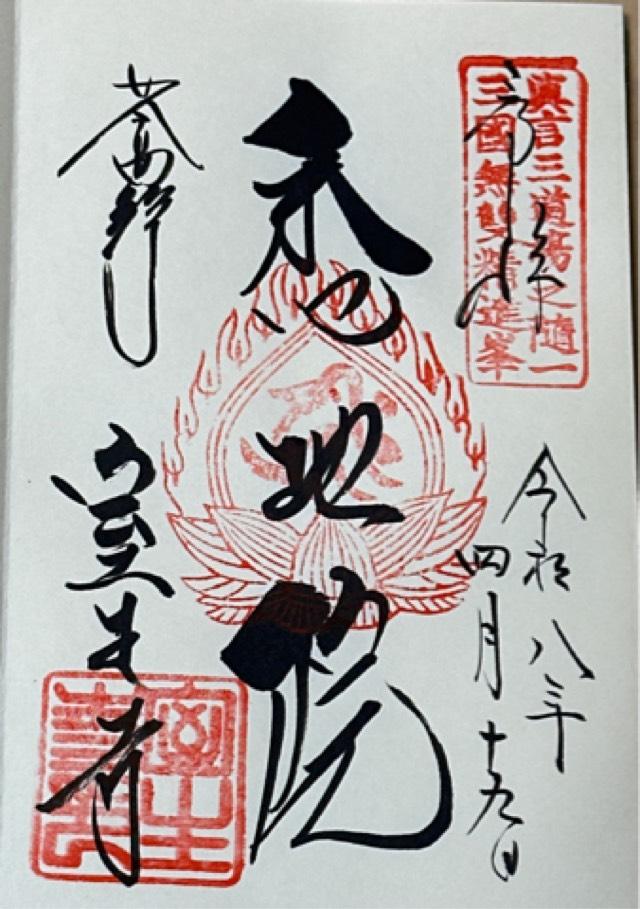 眞言三道塲之隨一
三國無雙精進峯
奉拝
令和八年
四月十九日
悉地院
女人高野
室生寺